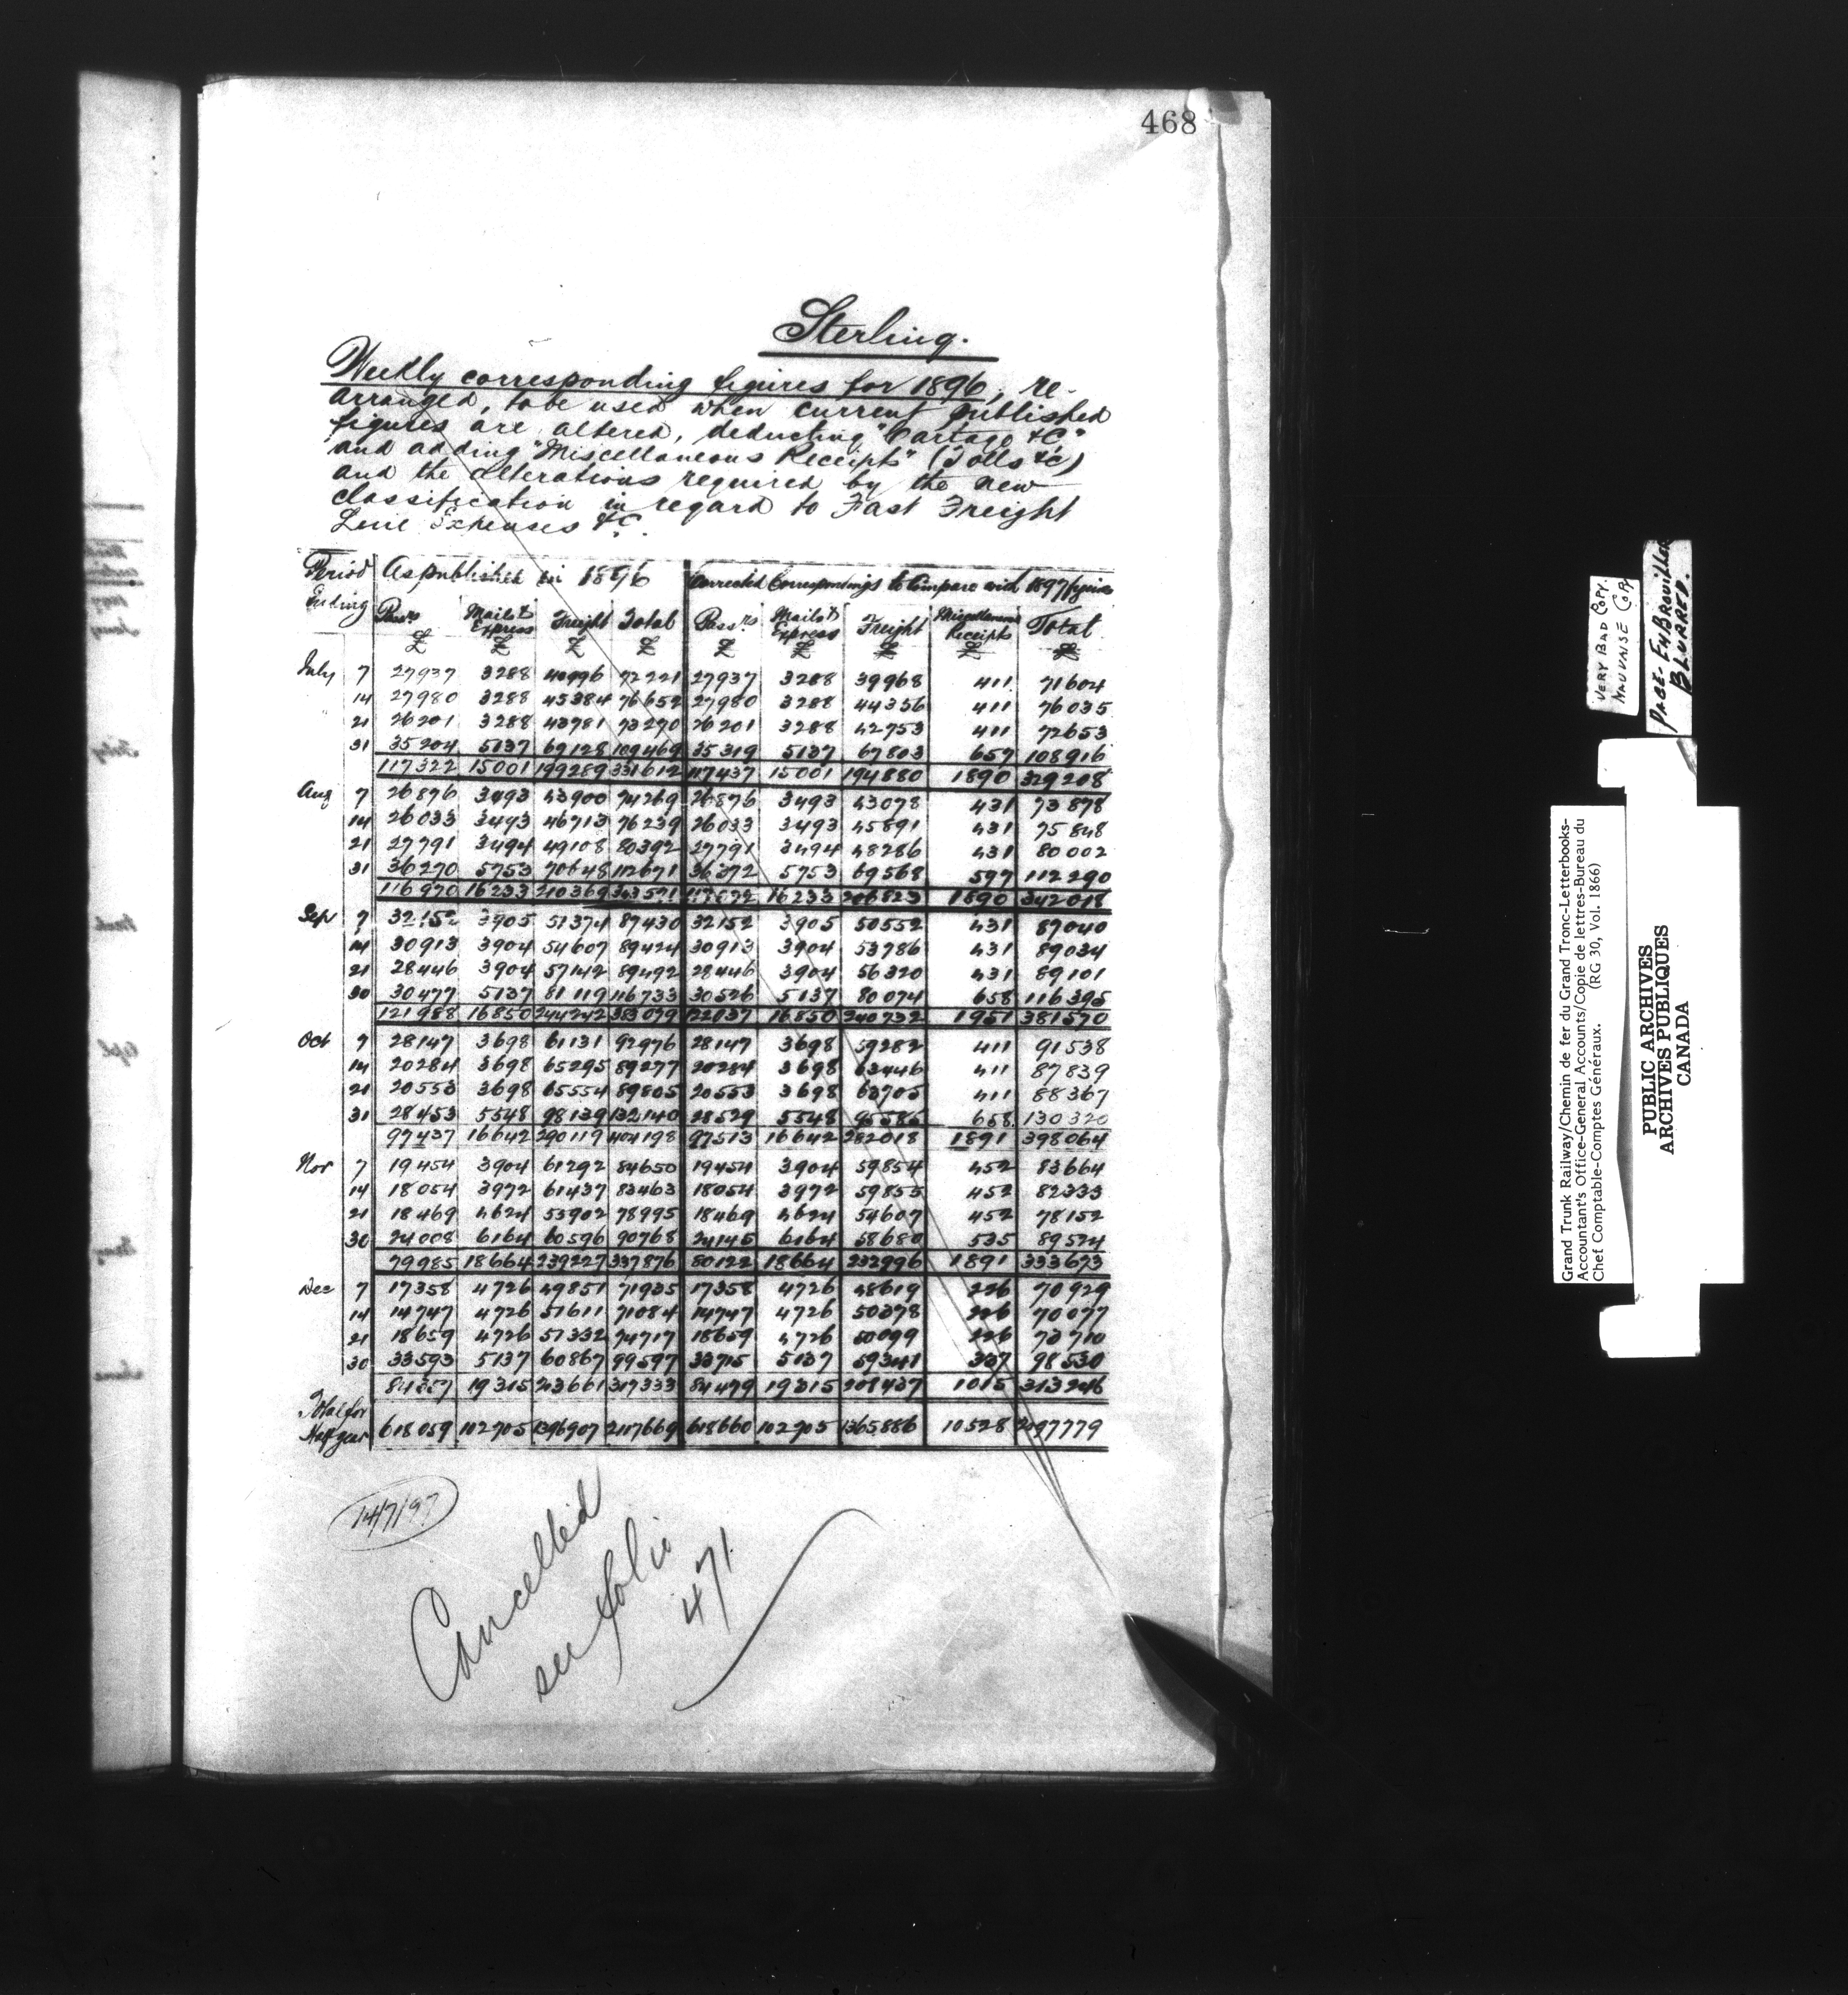 468
Sterling.
Weekly corresponding figures for 1896, re-
arranged, to be used when current published
figures are altered, deducting "Cartage &c"
and adding "Miscellaneous Receipts" (Tolls &c)
and the alterations required by the new
classification in regard to Fast Freight
Line Expenses &c.
Period Ending | As published in 1896 | Corrected Correspondings to Compare with 1897 figures
Passrs £ | Mails & Express £ | Freight £ | Total £ | Passrs £ | Mails & Express £ | Freight £ | Miscellaneous Receipts £ | Total £
July 7 27937 3288 40996 72221 27937 3288 39968 411 71604
14 27980 3288 45384 76652 27980 3288 44356 411 76035
21 26201 3288 43781 73270 26201 3288 42753 411 72653
31 35204 5137 69128 109469 35319 5137 67803 657 108916
117322 15001 199289 331612 117437 15001 194880 1890 329208
Aug 7 26876 3493 43900 74269 26876 3493 43078 431 73878
14 26033 3493 46713 76239 26033 3493 45891 431 75848
21 27791 3494 49108 80392 27791 3494 48286 431 80002
31 36270 5753 70648 112671 36372 5753 69568 597 112290
116970 16233 210369 343571 117072 16233 206823 1890 342018
Sep 7 32152 3905 51374 87430 32152 3905 50552 431 87040
14 30913 3904 54607 89424 30913 3904 53786 431 89034
21 28446 3904 57142 89492 28446 3904 56320 431 89101
30 30477 5137 81119 116733 30526 5137 80074 658 116395
121988 16850 244242 383079 122037 16850 240732 1951 381570
Oct 7 28147 3698 61131 92976 28147 3698 59282 411 91538
14 20284 3698 65295 89277 20284 3698 63446 411 87839
21 20553 3698 65554 89805 20553 3698 63705 411 88367
31 28453 5548 98139 132140 28529 5548 95585 658 130320
97437 16642 290119 404198 97513 16642 282018 1891 398064
Nov 7 19454 3904 61292 84650 19454 3904 59854 452 83664
14 18054 3972 61437 83463 18054 3972 59855 452 82333
21 18469 4624 53902 78995 18469 4624 54607 452 78152
30 24008 6164 60596 90768 24145 6164 58680 535 89524
79985 18664 239227 337876 80122 18664 232996 1891 333673
Dec 7 17358 4726 49851 71935 17358 4726 48619 226 70929
14 14747 4726 51611 71084 14747 4726 50378 226 70077
21 18659 4726 51332 74717 18659 4726 50099 226 73710
30 33593 5137 60867 99597 33715 5137 59341 337 98530
84357 19315 213661 317333 84479 19315 208437 1015 313246
Total for Half year 618059 102705 1396907 2117669 618660 102705 1365886 10528 2097779
14/7/97
Cancelled
see folio
471
VERY BAD COPY.
MAUVAISE COPY
PAGE-EMBROUILLÉE
BLURRED.
Grand Trunk Railway/Chemin de fer du Grand Tronc-Letterbooks-
Accountant's Office-General Accounts/Copie de lettres-Bureau du
Chef Comptable-Comptes Généraux. (RG 30, Vol. 1866)
PUBLIC ARCHIVES
ARCHIVES PUBLIQUES
CANADA